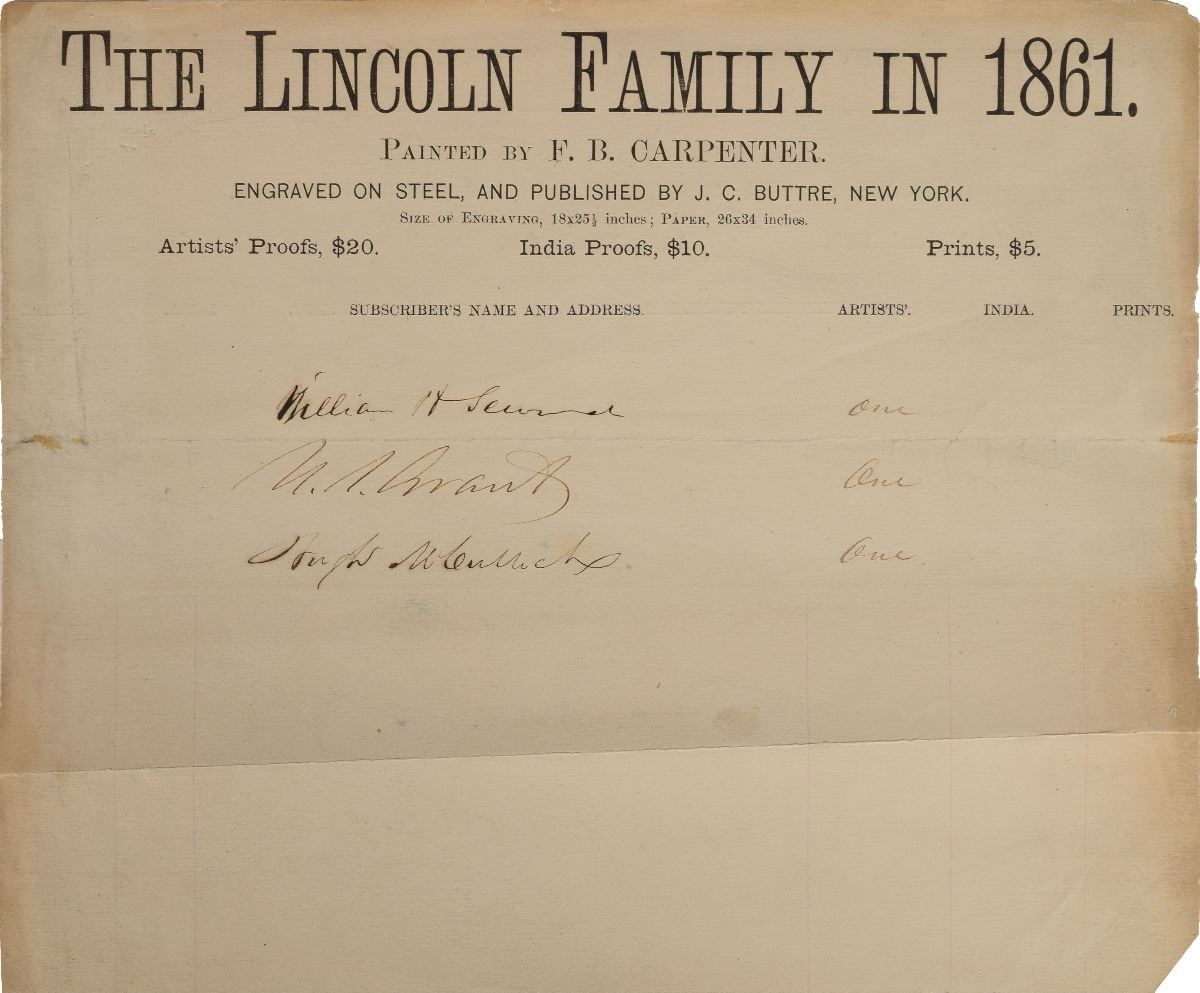 THE LINCOLN FAMILY IN 1861.
PAINTED BY F. B. CARPENTER.
ENGRAVED ON STEEL, AND PUBLISHED BY J. C. BUTTRE, NEW YORK.
SIZE OF ENGRAVING, 18x25½ inches; PAPER, 26x34 inches.
Artists' Proofs, $20. India Proofs, $10. Prints, $5.
SUBSCRIBER'S NAME AND ADDRESS. ARTISTS'. INDIA. PRINTS.
William H Seward One
U. S. Grant One
Hugh McCulloch One.